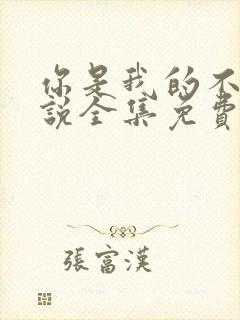 你是我的不
說全集免費
張富漢